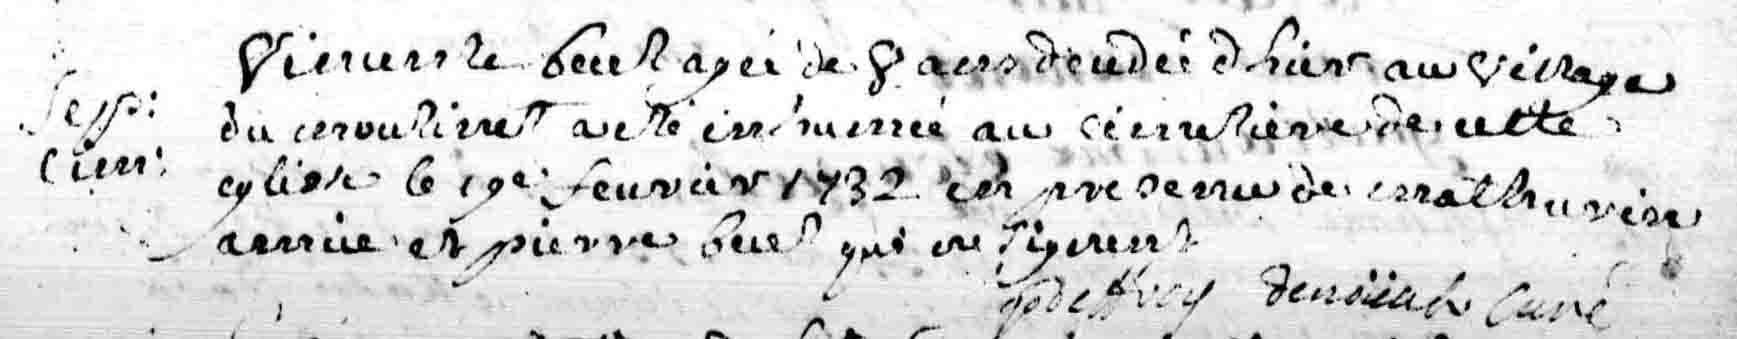 Sepp:
Cim:
Vincente buet ageé de 9 ans decedeé d'hier au village
du moulinet a esté inhumeé au cimetiere de cette
eglise le 19e feuvrier 1732 en presence de mathurin
amice et pierre buet qui ne signent
godeffroy curé